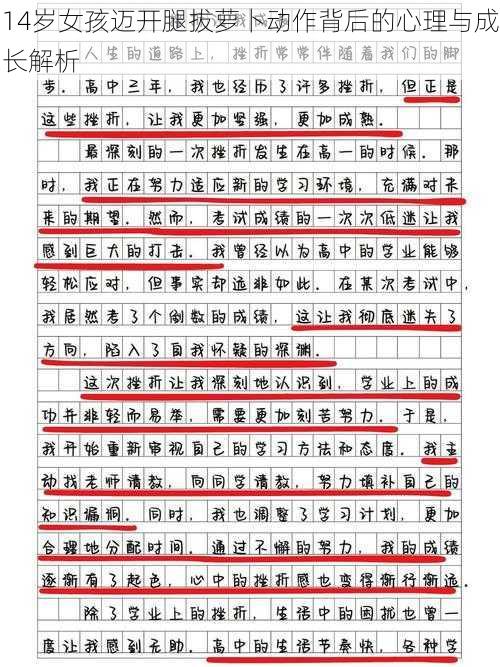 14岁女孩迈开腿拔萝卜动作背后的心理与成
长解析
人生的道路上，挫折常常伴随着我们的成长脚
步。高中三年，我也经历了许多挫折，但正是
这些挫折，让我更加坚强，更加成熟。
最深刻的一次挫折发生在高一的时候。那
时，我正在努力适应新的学习环境，充满对未
来的期望。然而，考试成绩的一次次低迷让我
感到巨大的打击。我曾经以为高中的学业能够
轻松应对，但事实却远非如此。在某次考试中，
我居然考了个倒数的成绩，这让我彻底迷失了
方向，陷入了自我怀疑的深渊。
这次挫折让我深刻地认识到，学业上的成
功并非轻而易举，需要更加刻苦努力。于是，
我开始重新审视自己的学习方法和态度。我主
动找老师请教，向同学请教，努力填补自己的
知识漏洞。同时，我也调整了学习计划，更加
合理地分配时间。通过不懈的努力，我的成绩
逐渐有了起色，心中的挫折感也变得渐行渐远。
除了学业上的挫折，生活中的困扰也曾一
度让我感到无助。高中的生活节奏快，各种学